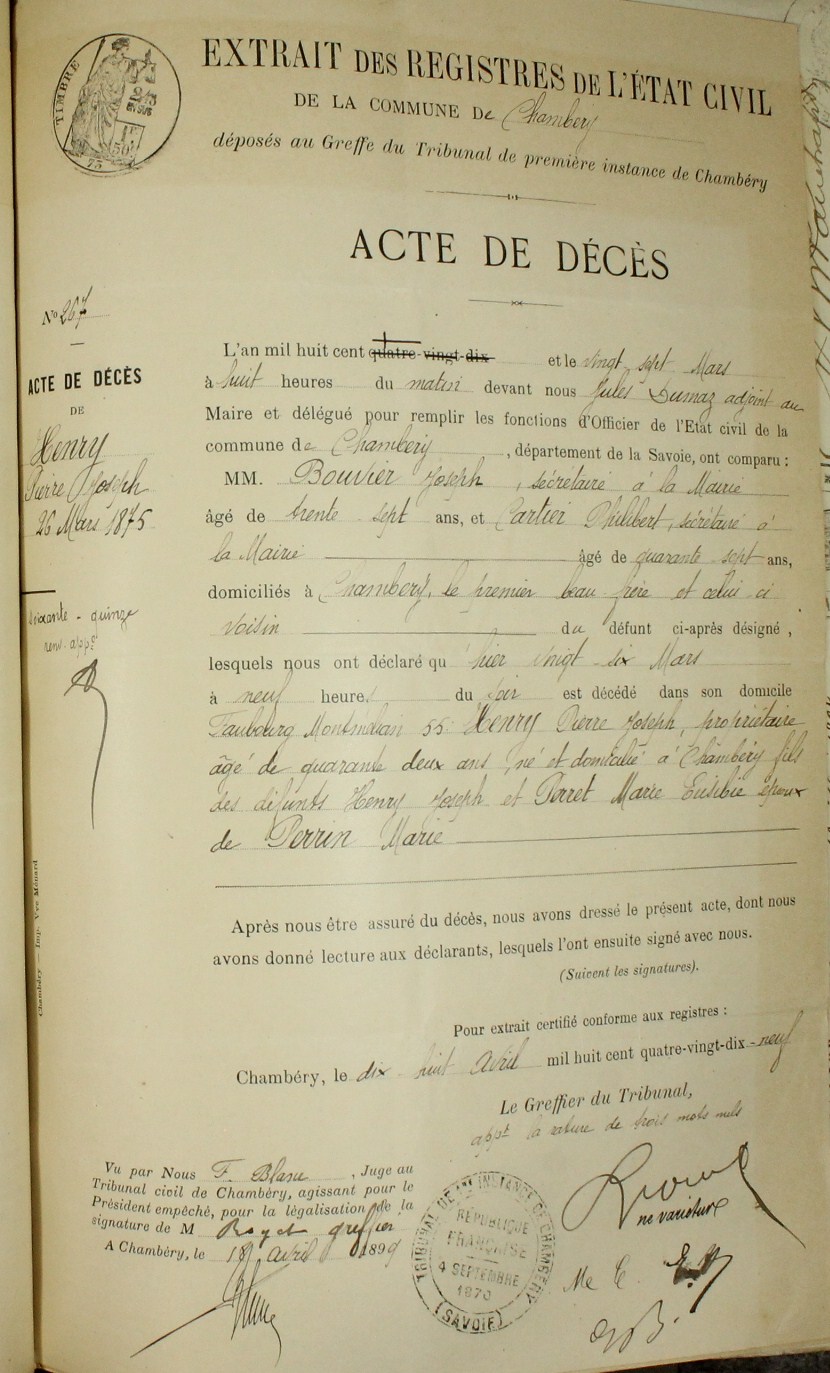 TIMBRE
EXTRAIT DES REGISTRES DE L'ÉTAT CIVIL
DE LA COMMUNE De Chambéry
déposés au Greffe du Tribunal de première instance de Chambéry
ACTE DE DÉCÈS
No 267
ACTE DE DÉCÈS
DE
Henry
Pierre Joseph
26 Mars 1875
soixante - quinze
renv. appé
L'an mil huit cent quatre-vingt-dix et le vingt sept Mars
à huit heures du matin devant nous Jules Dumaz adjoint au
Maire et délégué pour remplir les fonctions d'Officier de l'Etat civil de la
commune de Chambéry, département de la Savoie, ont comparu :
MM. Bouvier Joseph, secrétaire à la Mairie
âgé de trente sept ans, et Cartier Philibert, secrétaire à
la Mairie âgé de quarante sept ans,
domiciliés à Chambéry, le premier beau frère et celui ci
voisin du défunt ci-après désigné,
lesquels nous ont déclaré qu'hier vingt six Mars
à neuf heures du soir est décédé dans son domicile
Faubourg Montmélian 55 Henry Pierre Joseph, propriétaire
âgé de quarante deux ans, né et domicilié à Chambéry fils
des défunts Henry Joseph et Perret Marie Eusébie époux
de Perrin Marie
Après nous être assuré du décès, nous avons dressé le présent acte, dont nous
avons donné lecture aux déclarants, lesquels l'ont ensuite signé avec nous.
(Suivent les signatures).
Pour extrait certifié conforme aux registres :
Chambéry, le dix huit Avril mil huit cent quatre-vingt-dix-neuf
Le Greffier du Tribunal,
appt la rature de trois mots nuls
ne varietur
Vu par Nous F. Blanc, Juge au
Tribunal civil de Chambéry, agissant pour le
Président empêché, pour la légalisation de la
signature de M greffier
A Chambéry, le 18 avril 1899
TRIBUNAL DE 1re INSTANCE DE CHAMBÉRY
RÉPUBLIQUE
FRANÇAISE
4 SEPTEMBRE
1870
(SAVOIE)
Chambéry — Imp. Vve Ménard